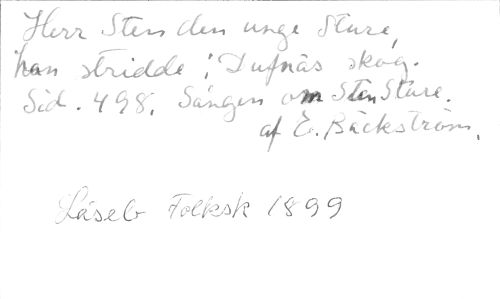 Herr Sten den unge Sture,
han stridde i Dufnäs skog.
Sid. 498. Sången om Sten Sture.
af E. Bäckström.
Läseb Folksk 1899